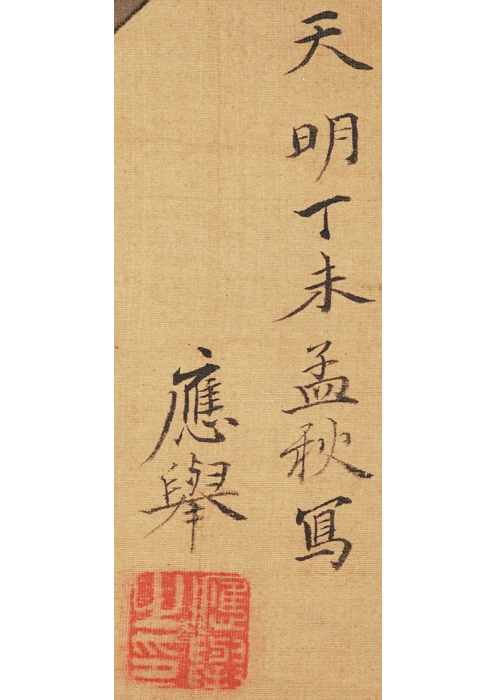 天明丁未孟秋寫
應舉
應舉之印